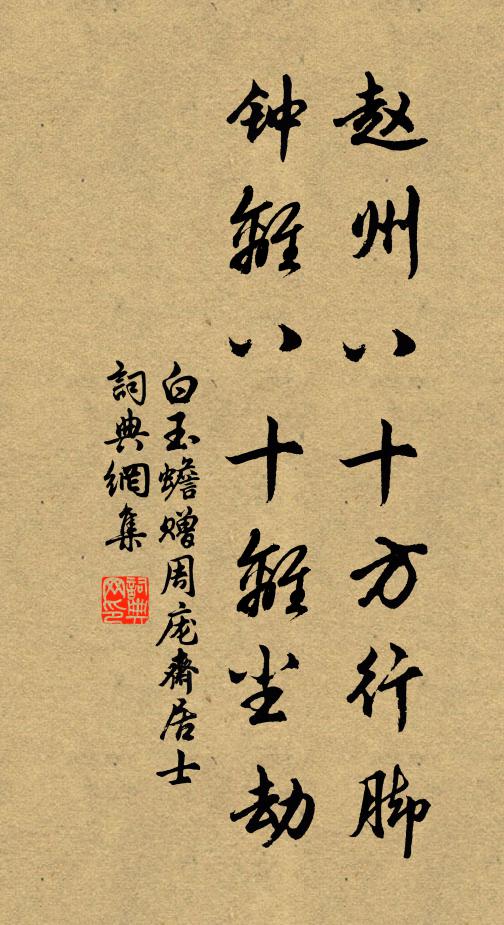 赵州八十方行脚
钟離八十離尘劫
白玉蟾赠周庞斋居士
詞典網集
詞典网印